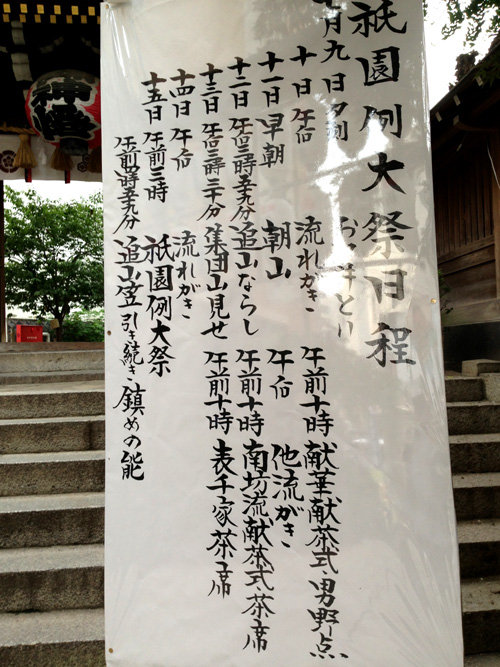 祇園例大祭日程
月九日夕刻 お汐井とり
十日 午后 流れがき 午前十時 献華献茶式・男野点
十一日 早朝 朝山 午后 他流がき
十二日 午后三時五十九分 追山ならし 午前十時 南坊流献茶式・茶席
十三日 午后三時三十分 集団山見せ 午前十時 表千家茶席
十四日 午后 流れがき
十五日 午前三時 祇園例大祭
午前四時五十九分 追山笠 引き続き 鎮めの能